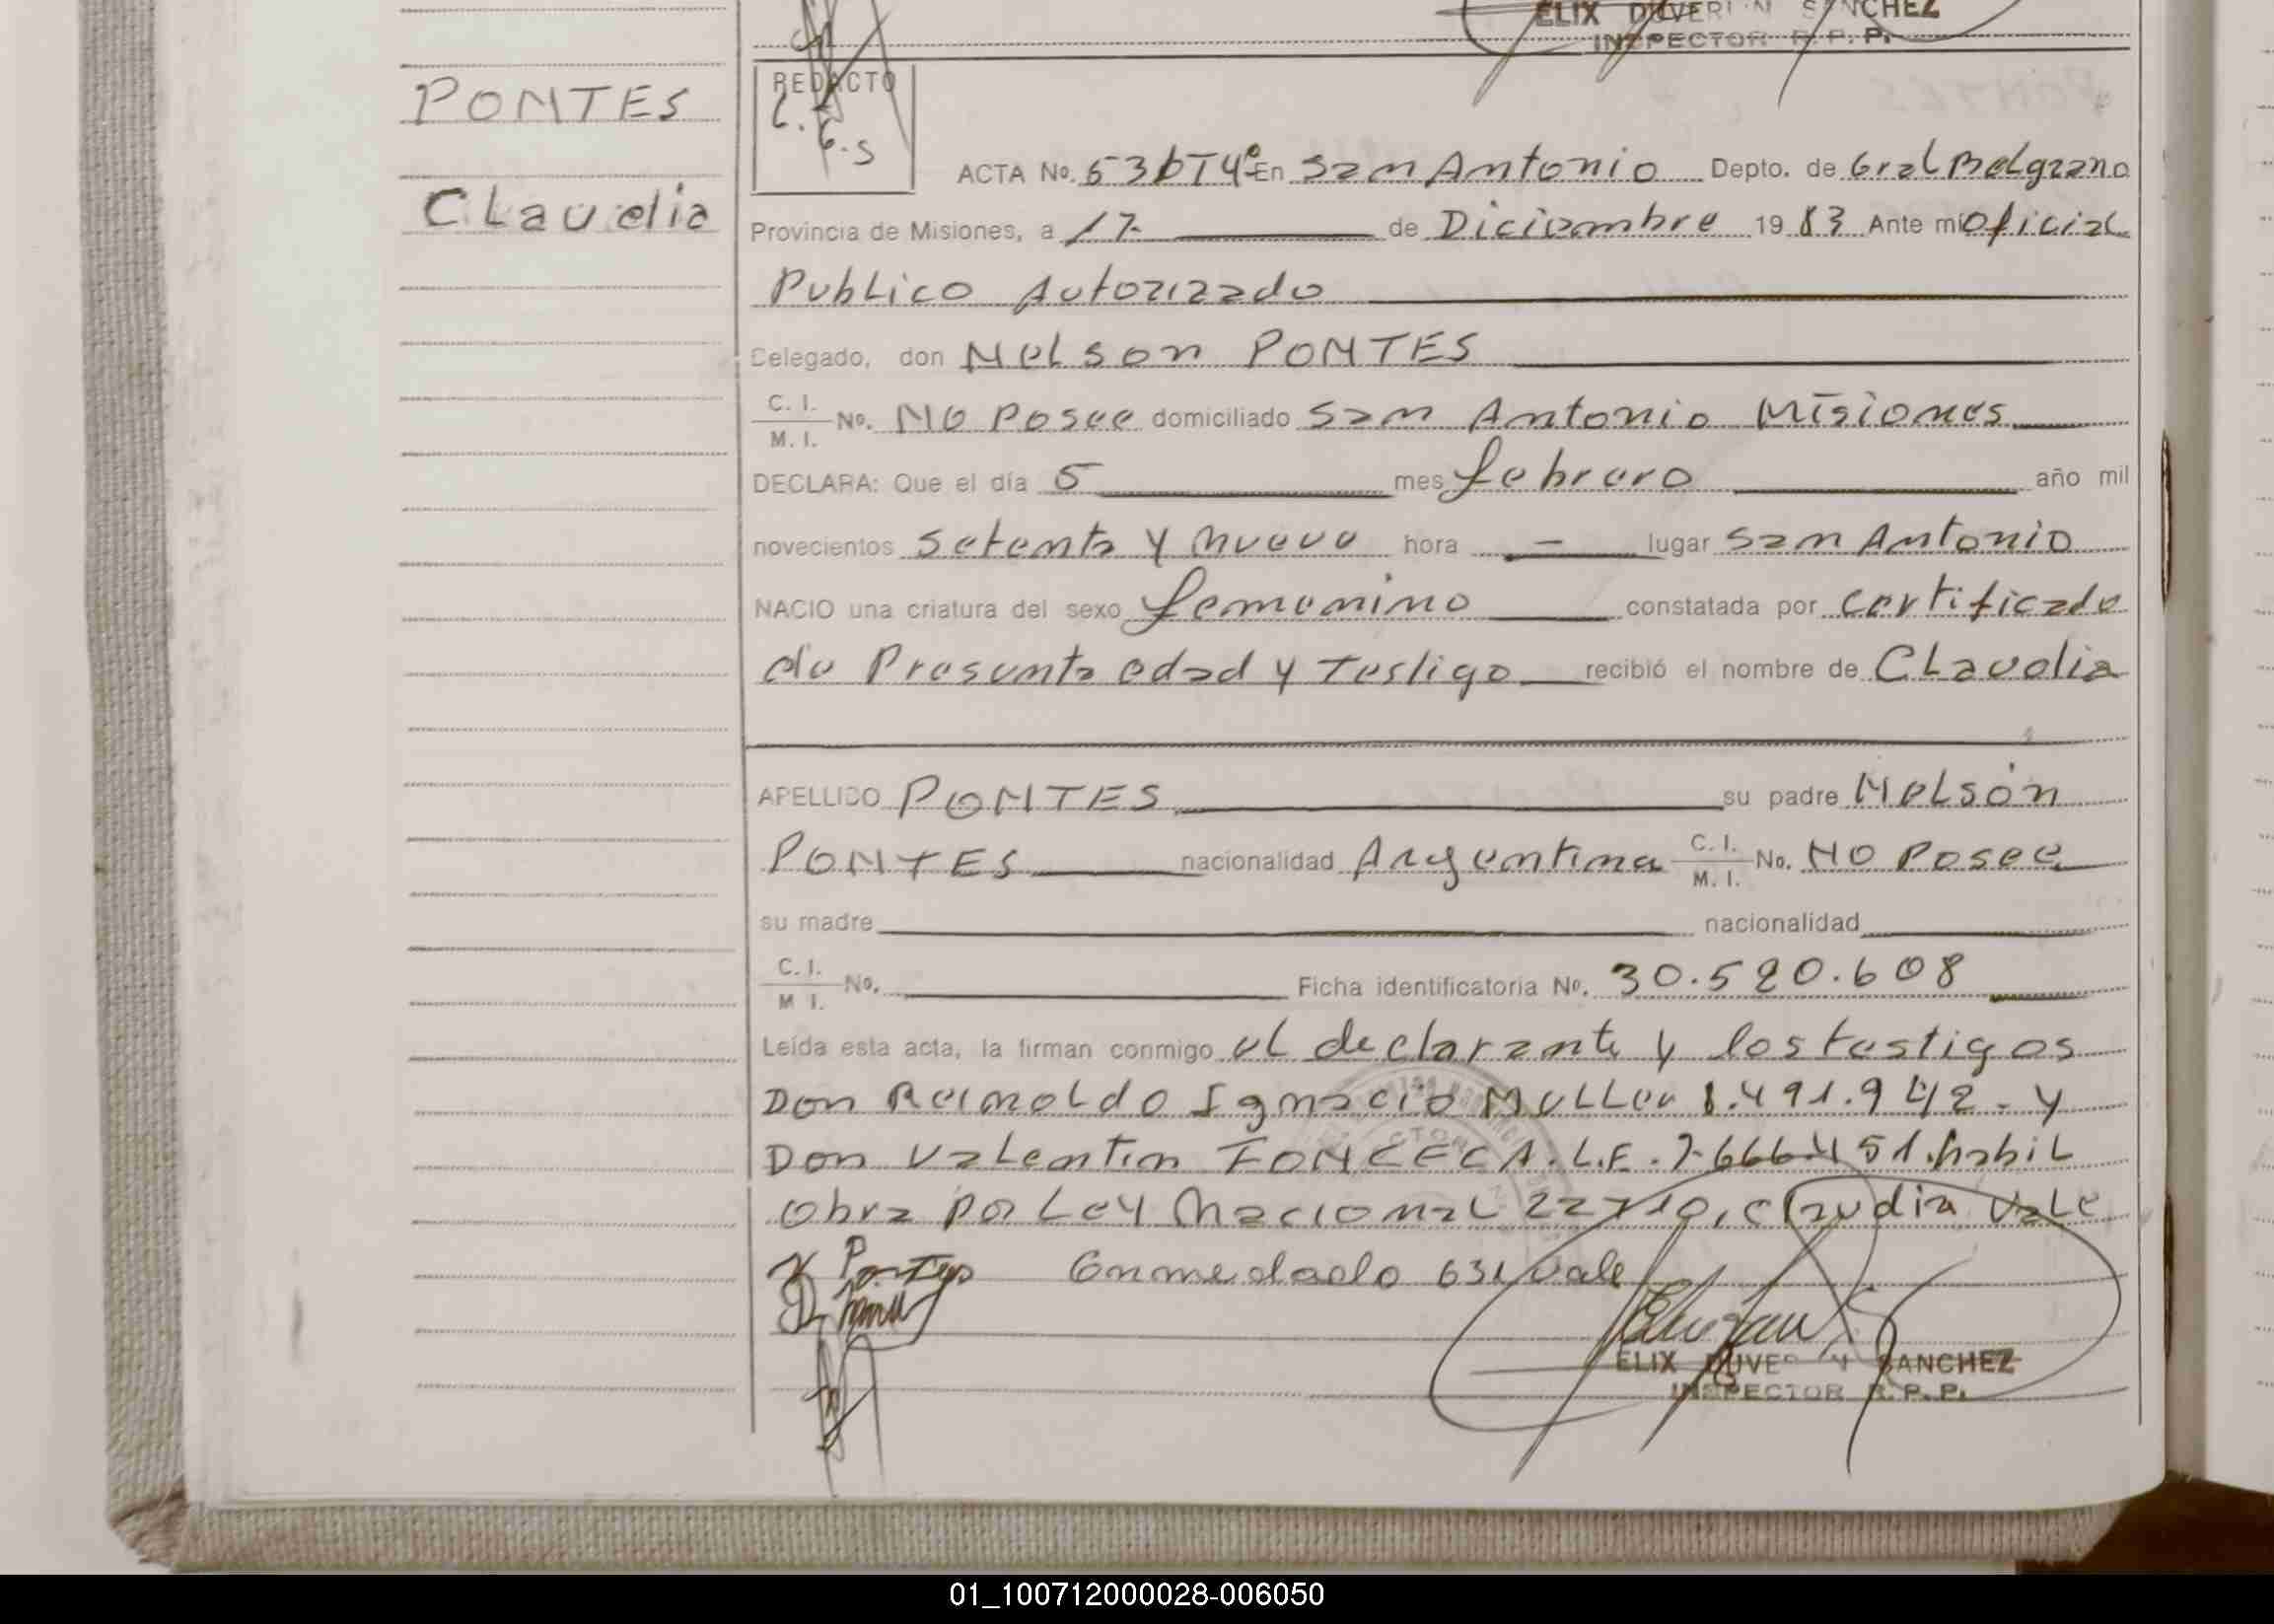 ELIX DUVER N SANCHEZ
INSPECTOR R.P.P.
PONTES
Claudia
REDACTO
ACTA No. En San Antonio Depto. de Gral Belgrano
Provincia de Misiones, a 17 de Diciembre 1983 Ante mi Oficial
Publico Autorizado
Delegado, don Nelson PONTES
C. I.
M. I. No. No Posee domiciliado San Antonio Misiones
DECLARA: Que el día 5 mes febrero año mil
novecientos setenta y nueve hora — lugar San Antonio
NACIO una criatura del sexo femenino constatada por certificado
de Presunta edad y Testigo recibió el nombre de Claudia
APELLIDO PONTES su padre Nelson
PONTES nacionalidad Argentina C. I. M. I. No. No Posee
su madre nacionalidad
C. I.
M I. No. Ficha identificatoria No. 30.520.608
Leída esta acta, la firman conmigo el declarante y los testigos
Don Reinoldo Ignacio Muller 8.491.942 - y
Don Valentin FONCECA. L.E. 7.666.451. habil
Obra por Ley Nacional 22710, Claudia Vale
Pontes Enmedado 631 vale
ELIX DUVE N SANCHEZ
INSPECTOR R.P.P.
01_100712000028-006050